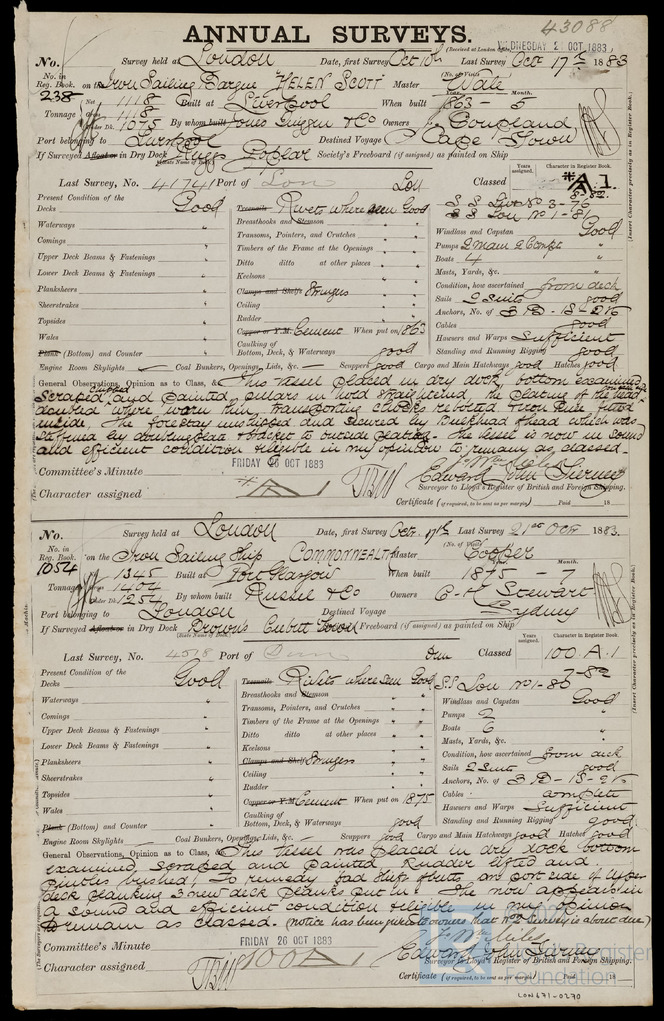 43088
ANNUAL SURVEYS.
(Received at London Office, WEDNESDAY 2 OCT 1883)
No. Survey held at London Date, first Survey Oct 10th Last Survey Octr 17th 1883
No. in Reg. Book. on the Iron Sailing Barque HELEN SCOTT Master Vale (No. of Visits)
238 Net 1118 Built at Liverpool When built 1863 - 5
Tonnage Gross 1118 Under Dk. 1075 By whom built Jones Quiggin & Co Owners J. Coupland
Port belonging to Liverpool Destined Voyage Cape Town
If Surveyed Afloat or in Dry Dock Poplar Society's Freeboard (if assigned) as painted on Ship
(State Name of Dock.)
Last Survey, No. 4174 Port of Lon Lon Classed A.1.
Years assigned. Character in Register Book.
(Insert Character precisely as in Register Book.)
Present Condition of the
Decks Good
Waterways "
Comings "
Upper Deck Beams & Fastenings "
Lower Deck Beams & Fastenings "
Planksheers "
Sheerstrakes "
Topsides "
Wales "
Plank (Bottom) and Counter "
Treenails Rivets where seen Good
Breasthooks and Stemson "
Transoms, Pointers, and Crutches "
Timbers of the Frame at the Openings "
Ditto ditto at other places "
Keelsons "
Clamps and Shelfs Stringers "
Ceiling "
Rudder "
Copper or Y.M. Cement When put on 1863
Caulking of
Bottom, Deck, & Waterways good
8.82.
S S Lon No 1-81
Windlass and Capstan Good
Pumps 2 main "
Boats 4 "
Masts, Yards, &c. "
Condition, how ascertained from deck
Sails 2 suits good
Anchors, No. of 3 B. 1 S 2 K
Cables good
Hawsers and Warps Sufficient
Standing and Running Rigging good
Engine Room Skylights Coal Bunkers, Openings, Lids, &c. Scuppers good Cargo and Main Hatchways good Hatches good
General Observations, Opinion as to Class, &c. This Vessel placed in dry dock, bottom examined
scraped and painted, pillars in hold straightened, the plating of the
doubled where worn thin, transporting chocks rebolted
inside. The forestay unshipped and secured by Bulkhead which was
stiffened by doubling & bracket to outside plating. The vessel is now in sound
and efficient condition eligible in my opinion to remain as classed.
Committee's Minute FRIDAY 26 OCT 1883
Edward John Tierney
Surveyor to Lloyd's Register of British and Foreign Shipping.
Character assigned A
Certificate (if required, to be sent as per margin) Paid 18
No. Survey held at London Date, first Survey Octr. 17th Last Survey 21st Oct 1883.
No. in Reg. Book. on the Iron Sailing Ship COMMONWEALTH Master Cooper (No. of Visits)
1054 1345 Built at Port Glasgow When built 1875 - 7
Tonnage 1404 1254 By whom built Russell & Co Owners C. H. Stewart
Port belonging to London Destined Voyage Sydney
If Surveyed Afloat or in Dry Dock Browns Cubitt Town Freeboard (if assigned) as painted on Ship
(State Name of Dock.)
Last Survey, No. 4518 Port of Dun Dun Classed 100.A.1
Years assigned. Character in Register Book.
(Insert Character precisely as in Register Book.)
Present Condition of the
Decks Good
Waterways "
Comings "
Upper Deck Beams & Fastenings "
Lower Deck Beams & Fastenings "
Planksheers "
Sheerstrakes "
Topsides "
Wales "
Plank (Bottom) and Counter "
Treenails Rivets where seen Good
Breasthooks and Stemson "
Transoms, Pointers, and Crutches "
Timbers of the Frame at the Openings "
Ditto ditto at other places "
Keelsons "
Clamps and Shelfs Stringers "
Ceiling "
Rudder "
Copper or Y.M. Cement When put on 1875
Caulking of
Bottom, Deck, & Waterways good
7-82
S.S Lon No 1-80
Windlass and Capstan Good
Pumps 2 "
Boats 6 "
Masts, Yards, &c. "
Condition, how ascertained from deck
Sails 2 Suit good
Anchors, No. of 3 B - 1 S - 2 K
Cables complete
Hawsers and Warps Sufficient
Standing and Running Rigging good
Engine Room Skylights Coal Bunkers, Openings, Lids, &c. Scuppers good Cargo and Main Hatchways good Hatches good
General Observations, Opinion as to Class, &c. This Vessel was placed in dry dock bottom
examined, scraped and painted Rudder lifted and
pintles bushed; To remedy bad shift of butts on port side of upper
deck planking 3 new deck planks put in. She now appears in
a sound and efficient condition eligible in my opinion
to remain as classed. (notice has been given to owners that No 2 Survey is about due)
Committee's Minute FRIDAY 26 OCT 1883
Edward John Tierney
Surveyor to Lloyd's Register of British and Foreign Shipping.
Character assigned 100A1
Certificate (if required, to be sent as per margin) Paid 18
Register
Foundation
LON671-0270